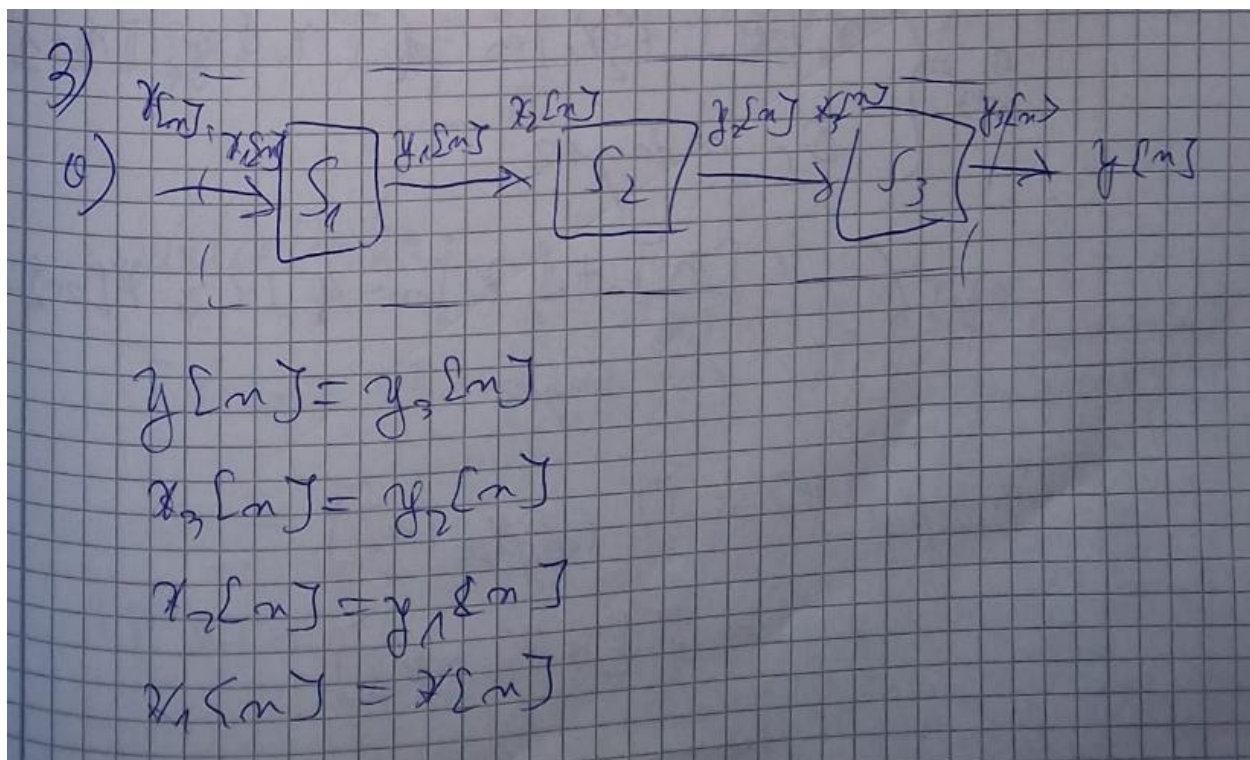 3)
a) x[n] x₁[n] S₁ y₁[n] x₂[n] S₂ y₂[n] x₃[n] S₃ y₃[n] y[n]
y[n] = y₃[n]
x₃[n] = y₂[n]
x₂[n] = y₁[n]
x₁[n] = x[n]